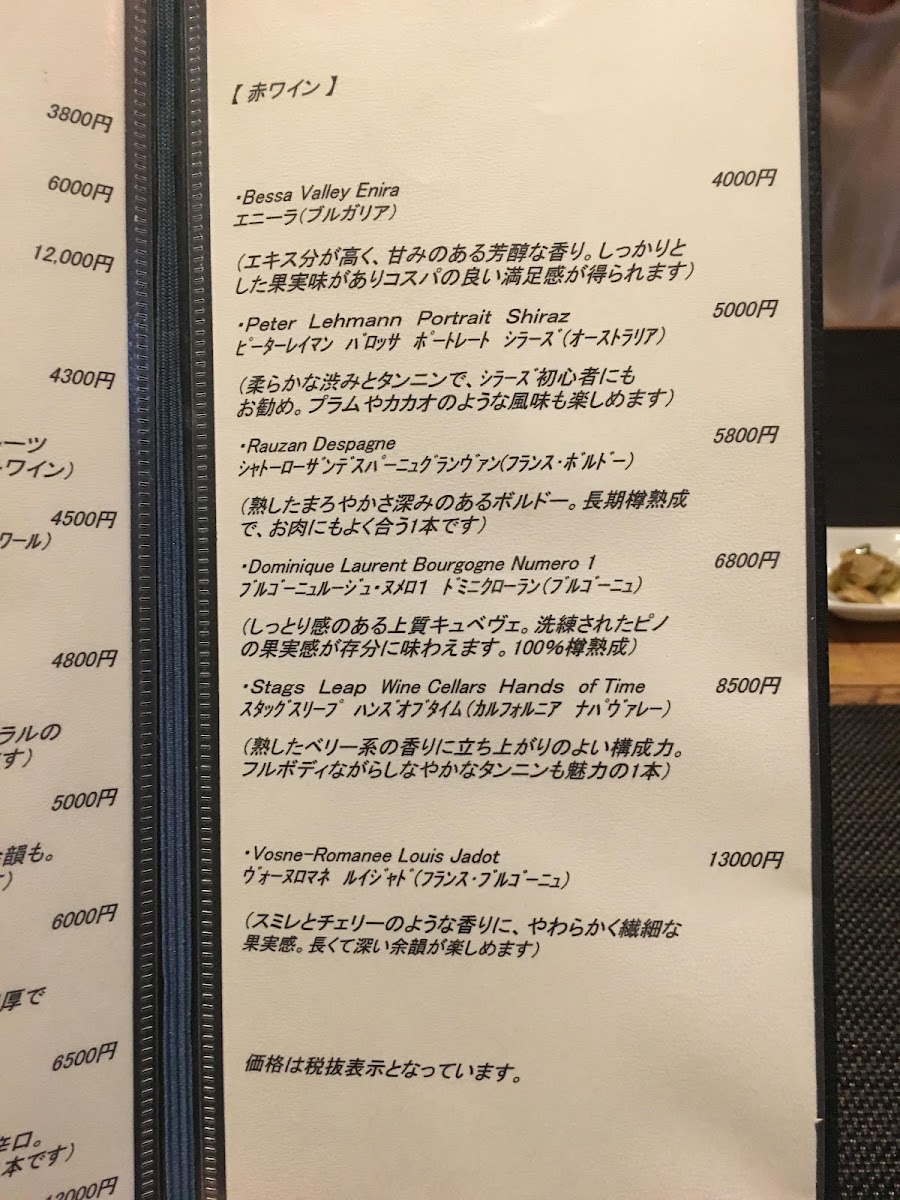 3800円
6000円
12,000円
4300円
ーツ
ワイン)
4500円
ワール)
4800円
ラルの
す)
5000円
韻も。
)
6000円
厚で
6500円
辛口。
本です)
【 赤ワイン 】
・Bessa Valley Enira 4000円
エニーラ(ブルガリア)
(エキス分が高く、甘みのある芳醇な香り。しっかりと
した果実味がありコスパの良い満足感が得られます)
・Peter Lehmann Portrait Shiraz 5000円
ﾋﾟｰﾀｰﾚｲﾏﾝ ﾊﾞﾛｯｻ ﾎﾟｰﾄﾚｰﾄ ｼﾗｰｽﾞ(オーストラリア)
(柔らかな渋みとタンニンで、ｼﾗｰｽﾞ初心者にも
お勧め。プラムやカカオのような風味も楽しめます)
・Rauzan Despagne 5800円
ｼｬﾄｰﾛｰｻﾞﾝﾃﾞｽﾊﾟｰﾆｭｸﾞﾗﾝｳﾞｧﾝ(フランス・ﾎﾞﾙﾄﾞｰ)
(熟したまろやかさ深みのあるボルドー。長期樽熟成
で、お肉にもよく合う1本です)
・Dominique Laurent Bourgogne Numero 1 6800円
ﾌﾞﾙｺﾞｰﾆｭﾙｰｼﾞｭ・ﾇﾒﾛ1 ﾄﾞﾐﾆｸﾛｰﾗﾝ(ﾌﾞﾙｺﾞｰﾆｭ)
(しっとり感のある上質キュベヴェ。洗練されたピノ
の果実感が存分に味わえます。100%樽熟成)
・Stags Leap Wine Cellars Hands of Time 8500円
ｽﾀｯｸﾞｽﾘｰﾌﾟ ﾊﾝｽﾞｵﾌﾞﾀｲﾑ(ｶﾙﾌｫﾙﾆｱ ﾅﾊﾟｳﾞｧﾚｰ)
(熟したベリー系の香りに立ち上がりのよい構成力。
フルボディながらしなやかなタンニンも魅力の1本)
・Vosne-Romanee Louis Jadot 13000円
ｳﾞｫｰﾇﾛﾏﾈ ﾙｲｼﾞｬﾄﾞ(フランス・ﾌﾞﾙｺﾞｰﾆｭ)
(スミレとチェリーのような香りに、やわらかく繊細な
果実感。長くて深い余韻が楽しめます)
価格は税抜表示となっています。